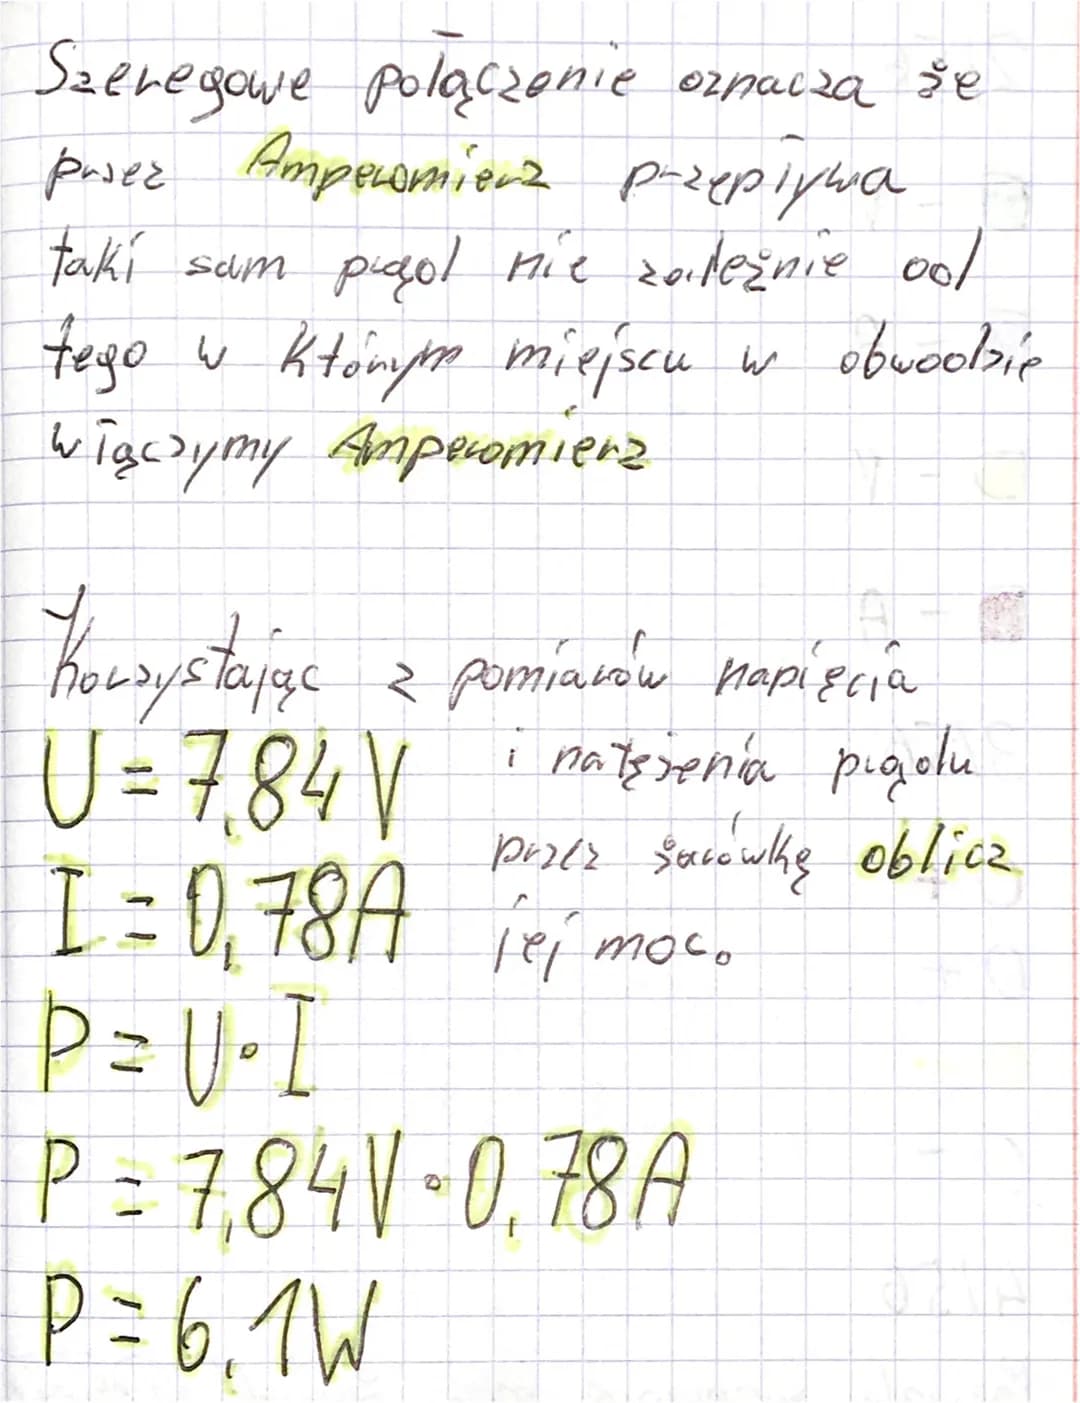 Szeregowe połączenie oznacza że
przez Amperomierz przepływa
taki sam prąd nie zależnie od
tego w którym miejscu w obwodzie
włączymy Amperomierz
Korzystając z pomiarów napięcia
i natężenia prądu
przez żarówkę oblicz
jej moc.
U = 7,84V
I = 0,78A
P = U·I
P = 7,84V·0,78A
P = 6,1W